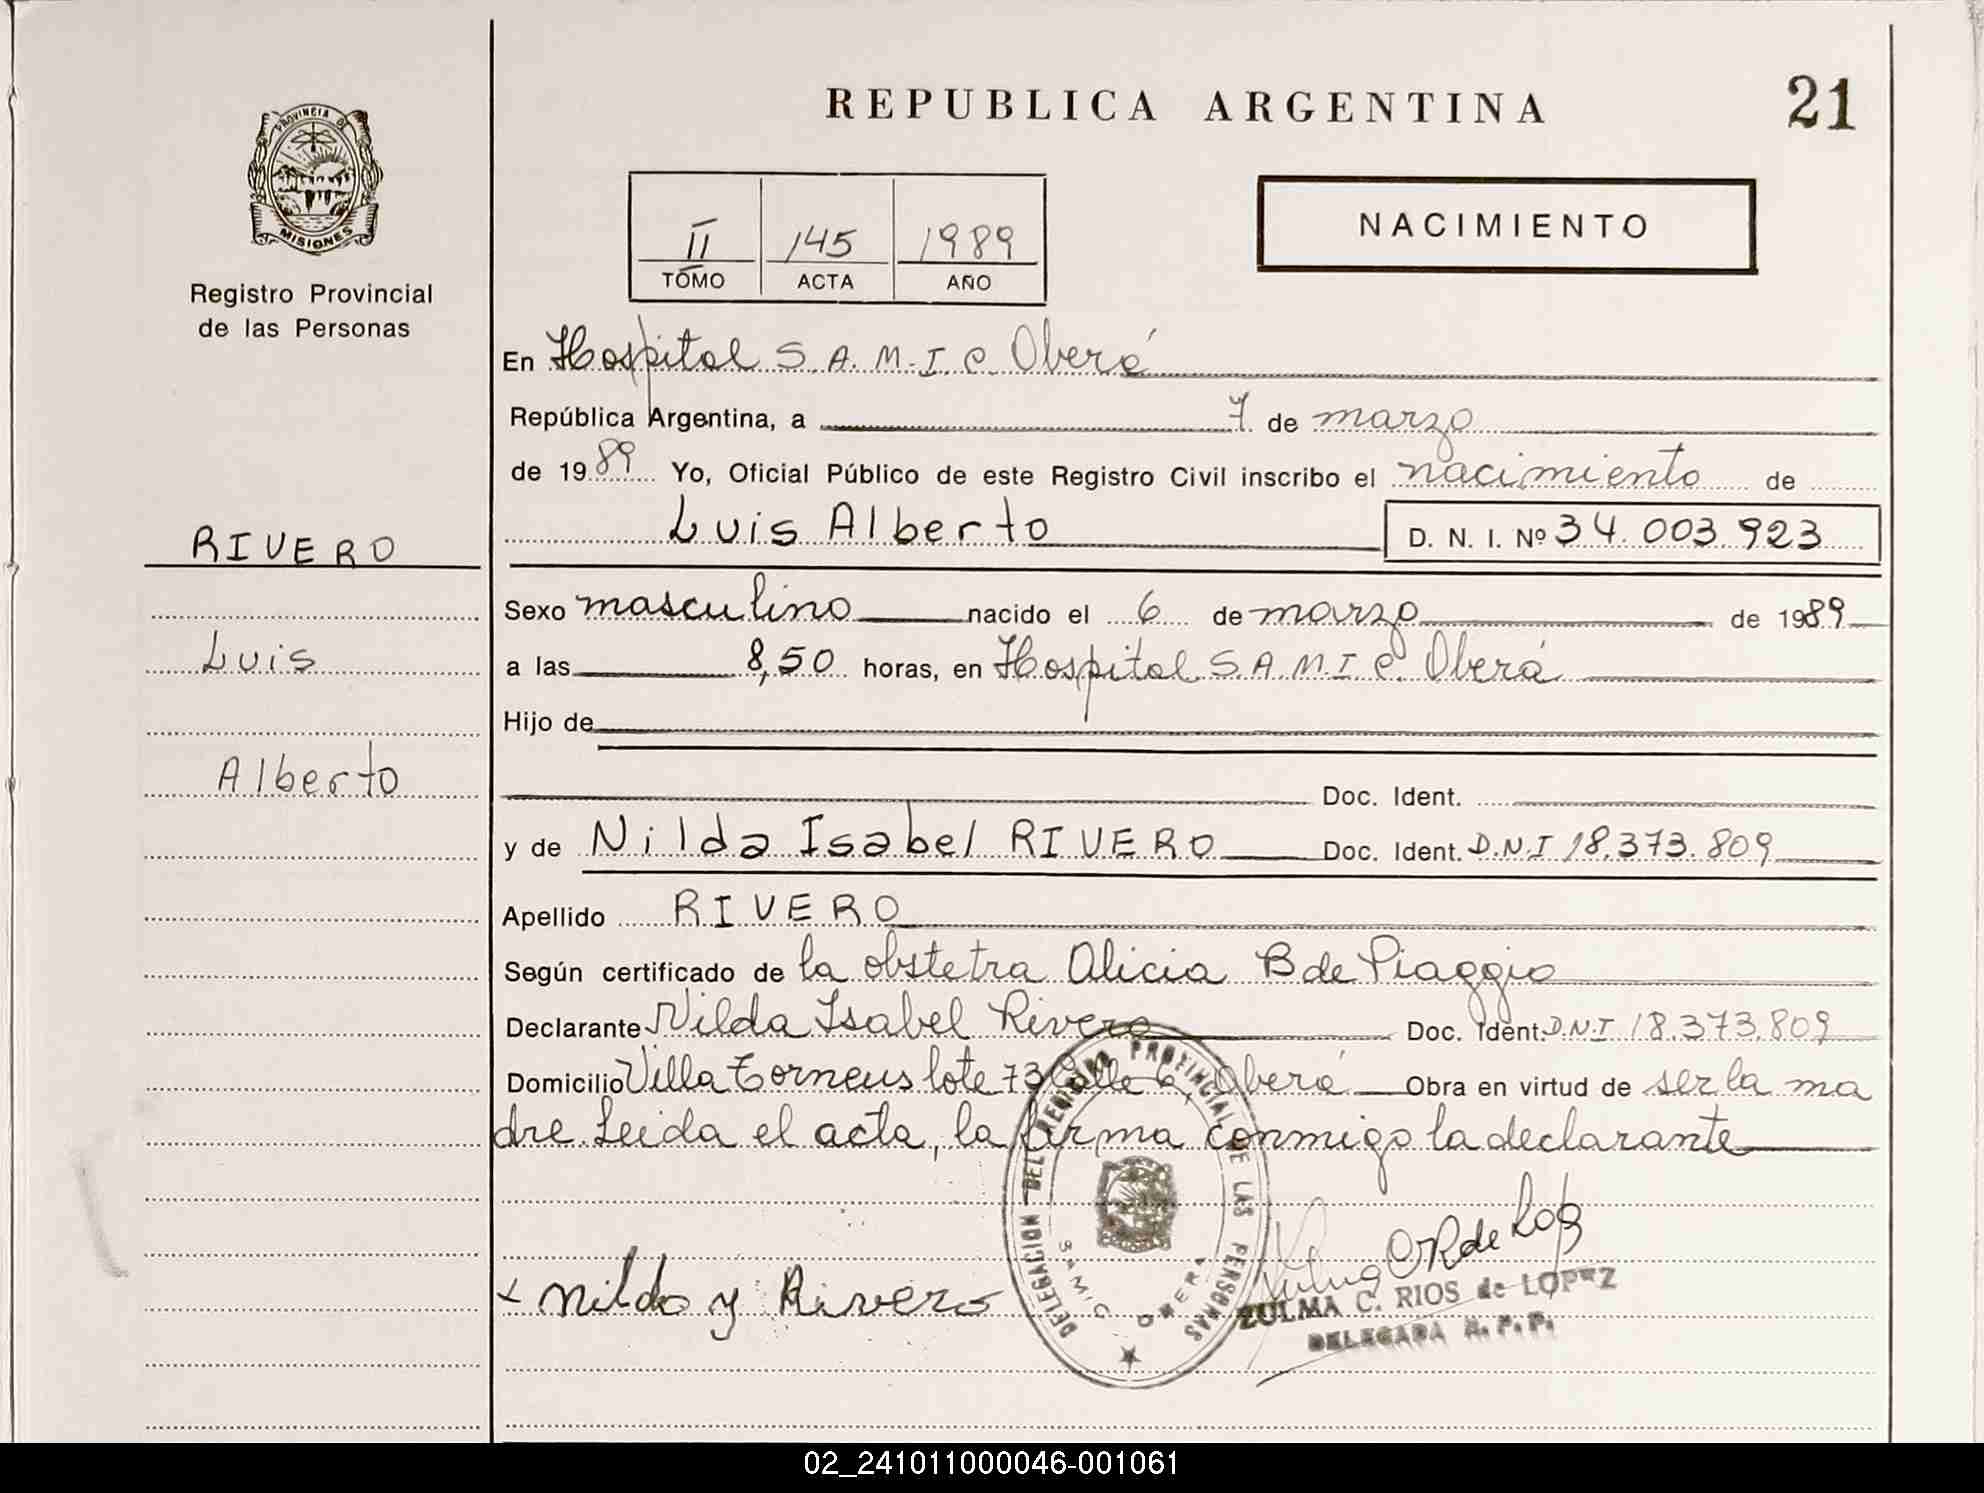 REPUBLICA ARGENTINA
21
PROVINCIA DE
MISIONES
Registro Provincial
de las Personas
II 145 1989
TOMO ACTA AÑO
NACIMIENTO
En Hospital S.A.M.I.C. Oberá
República Argentina, a 7 de marzo
de 1989 Yo, Oficial Público de este Registro Civil inscribo el nacimiento de
Luis Alberto D. N. I. Nº 34.003.923
RIVERO
Luis
Alberto
Sexo masculino nacido el 6 de marzo de 1989
a las 8,50 horas, en Hospital S.A.M.I.C. Oberá
Hijo de
Doc. Ident.
y de Nilda Isabel RIVERO Doc. Ident. D.N.I 18.373.809
Apellido RIVERO
Según certificado de la obstetra Alicia B de Piaggio
Declarante Nilda Isabel Rivero Doc. Ident. D.N.I 18.373.809
Domicilio Villa Torneus lote 73 Calle 6, Oberá Obra en virtud de ser la ma
dre. Leida el acta, la firma conmigo la declarante
DELEGACION DEL REGISTRO PROVINCIAL DE LAS PERSONAS
SAMIC OBERA
x Nilda y Rivero
ZULMA C. RIOS de LOPEZ
DELEGADA R. P. P.
02_241011000046-001061